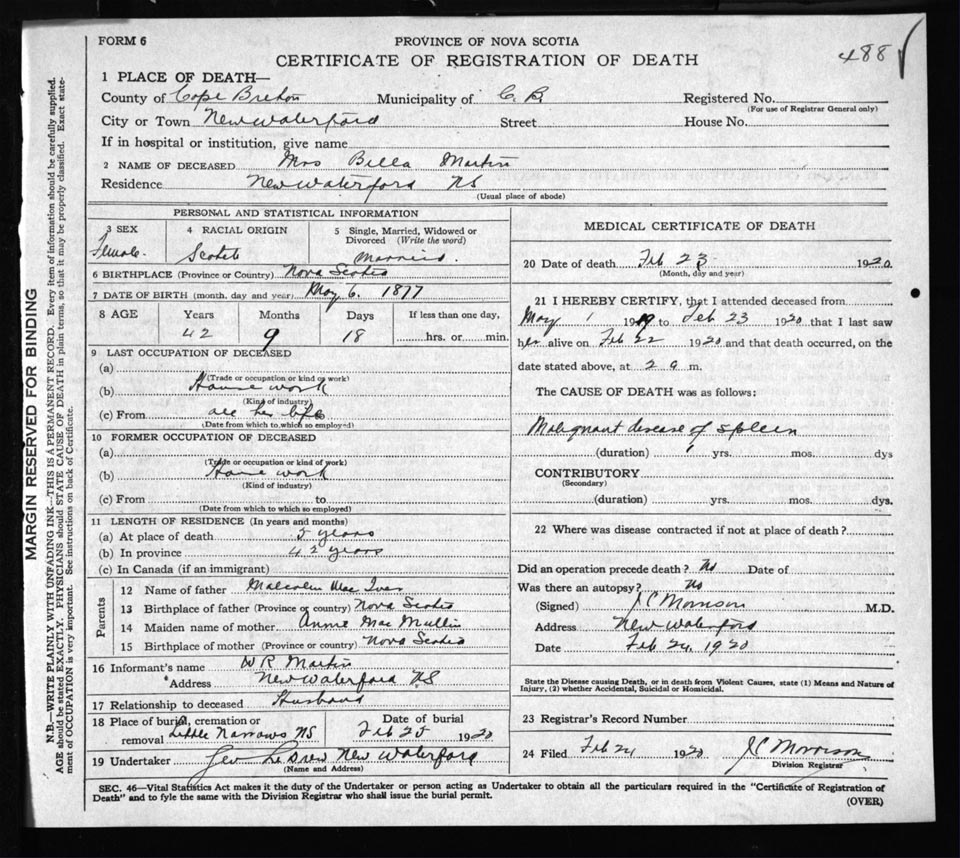 FORM 6
PROVINCE OF NOVA SCOTIA
488
CERTIFICATE OF REGISTRATION OF DEATH
1 PLACE OF DEATH—
County of Cape Breton Municipality of C. B. Registered No.
(For use of Registrar General only)
City or Town New Waterford Street House No.
If in hospital or institution, give name
2 NAME OF DECEASED Mrs Bella Martin
Residence New Waterford NS
(Usual place of abode)
PERSONAL AND STATISTICAL INFORMATION
3 SEX 4 RACIAL ORIGIN 5 Single, Married, Widowed or
Divorced (Write the word)
Female. Scotch Married.
6 BIRTHPLACE (Province or Country) Nova Scotia
7 DATE OF BIRTH (month, day and year) May 6. 1877
8 AGE Years Months Days If less than one day,
42 9 18 hrs. or min.
9 LAST OCCUPATION OF DECEASED
(a)
(Trade or occupation or kind of work)
(b) House work
(Kind of industry)
(c) From all her life
(Date from which to which so employed)
10 FORMER OCCUPATION OF DECEASED
(a)
(Trade or occupation or kind of work)
(b) House work
(Kind of industry)
(c) From to
(Date from which to which so employed)
11 LENGTH OF RESIDENCE (In years and months)
(a) At place of death 5 years
(b) In province 42 years
(c) In Canada (if an immigrant)
Parents
12 Name of father Malcolm Mac Iver
13 Birthplace of father (Province or country) Nova Scotia
14 Maiden name of mother Annie Mac Mullin
15 Birthplace of mother (Province or country) Nova Scotia
16 Informant's name W R Martin
* Address New Waterford NS
17 Relationship to deceased Husband
18 Place of burial, cremation or Date of burial
removal Little Narrows NS Feb 25 1920
19 Undertaker Geo New Waterford
(Name and Address)
MEDICAL CERTIFICATE OF DEATH
20 Date of death Feb 23 1920
(Month, day and year)
21 I HEREBY CERTIFY, that I attended deceased from
May 1 1919 to Feb 23 1920 that I last saw
her alive on Feb 22 1920 and that death occurred, on the
date stated above, at 2 a m.
The CAUSE OF DEATH was as follows:
Malignant disease of spleen
(duration) 1 yrs. mos. dys
CONTRIBUTORY
(Secondary)
(duration) yrs. mos. dys.
22 Where was disease contracted if not at place of death?
Did an operation precede death? No Date of
Was there an autopsy? No
(Signed) J C Morrison M.D.
Address New Waterford
Date Feb 24 1920
State the Disease causing Death, or in death from Violent Causes, state (1) Means and Nature of
Injury, (2) whether Accidental, Suicidal or Homicidal.
23 Registrar's Record Number
24 Filed Feb 24 1920 J C Morrison
Division Registrar
SEC. 46—Vital Statistics Act makes it the duty of the Undertaker or person acting as Undertaker to obtain all the particulars required in the "Certificate of Registration of
Death" and to fyle the same with the Division Registrar who shall issue the burial permit.
(OVER)
MARGIN RESERVED FOR BINDING
N.B.—WRITE PLAINLY WITH UNFADING INK—THIS IS A PERMANENT RECORD. Every item of information should be carefully supplied.
AGE should be stated EXACTLY. PHYSICIANS should STATE CAUSE OF DEATH in plain terms, so that it may be properly classified. Exact state-
ment of OCCUPATION is very important. See instructions on back of Certificate.